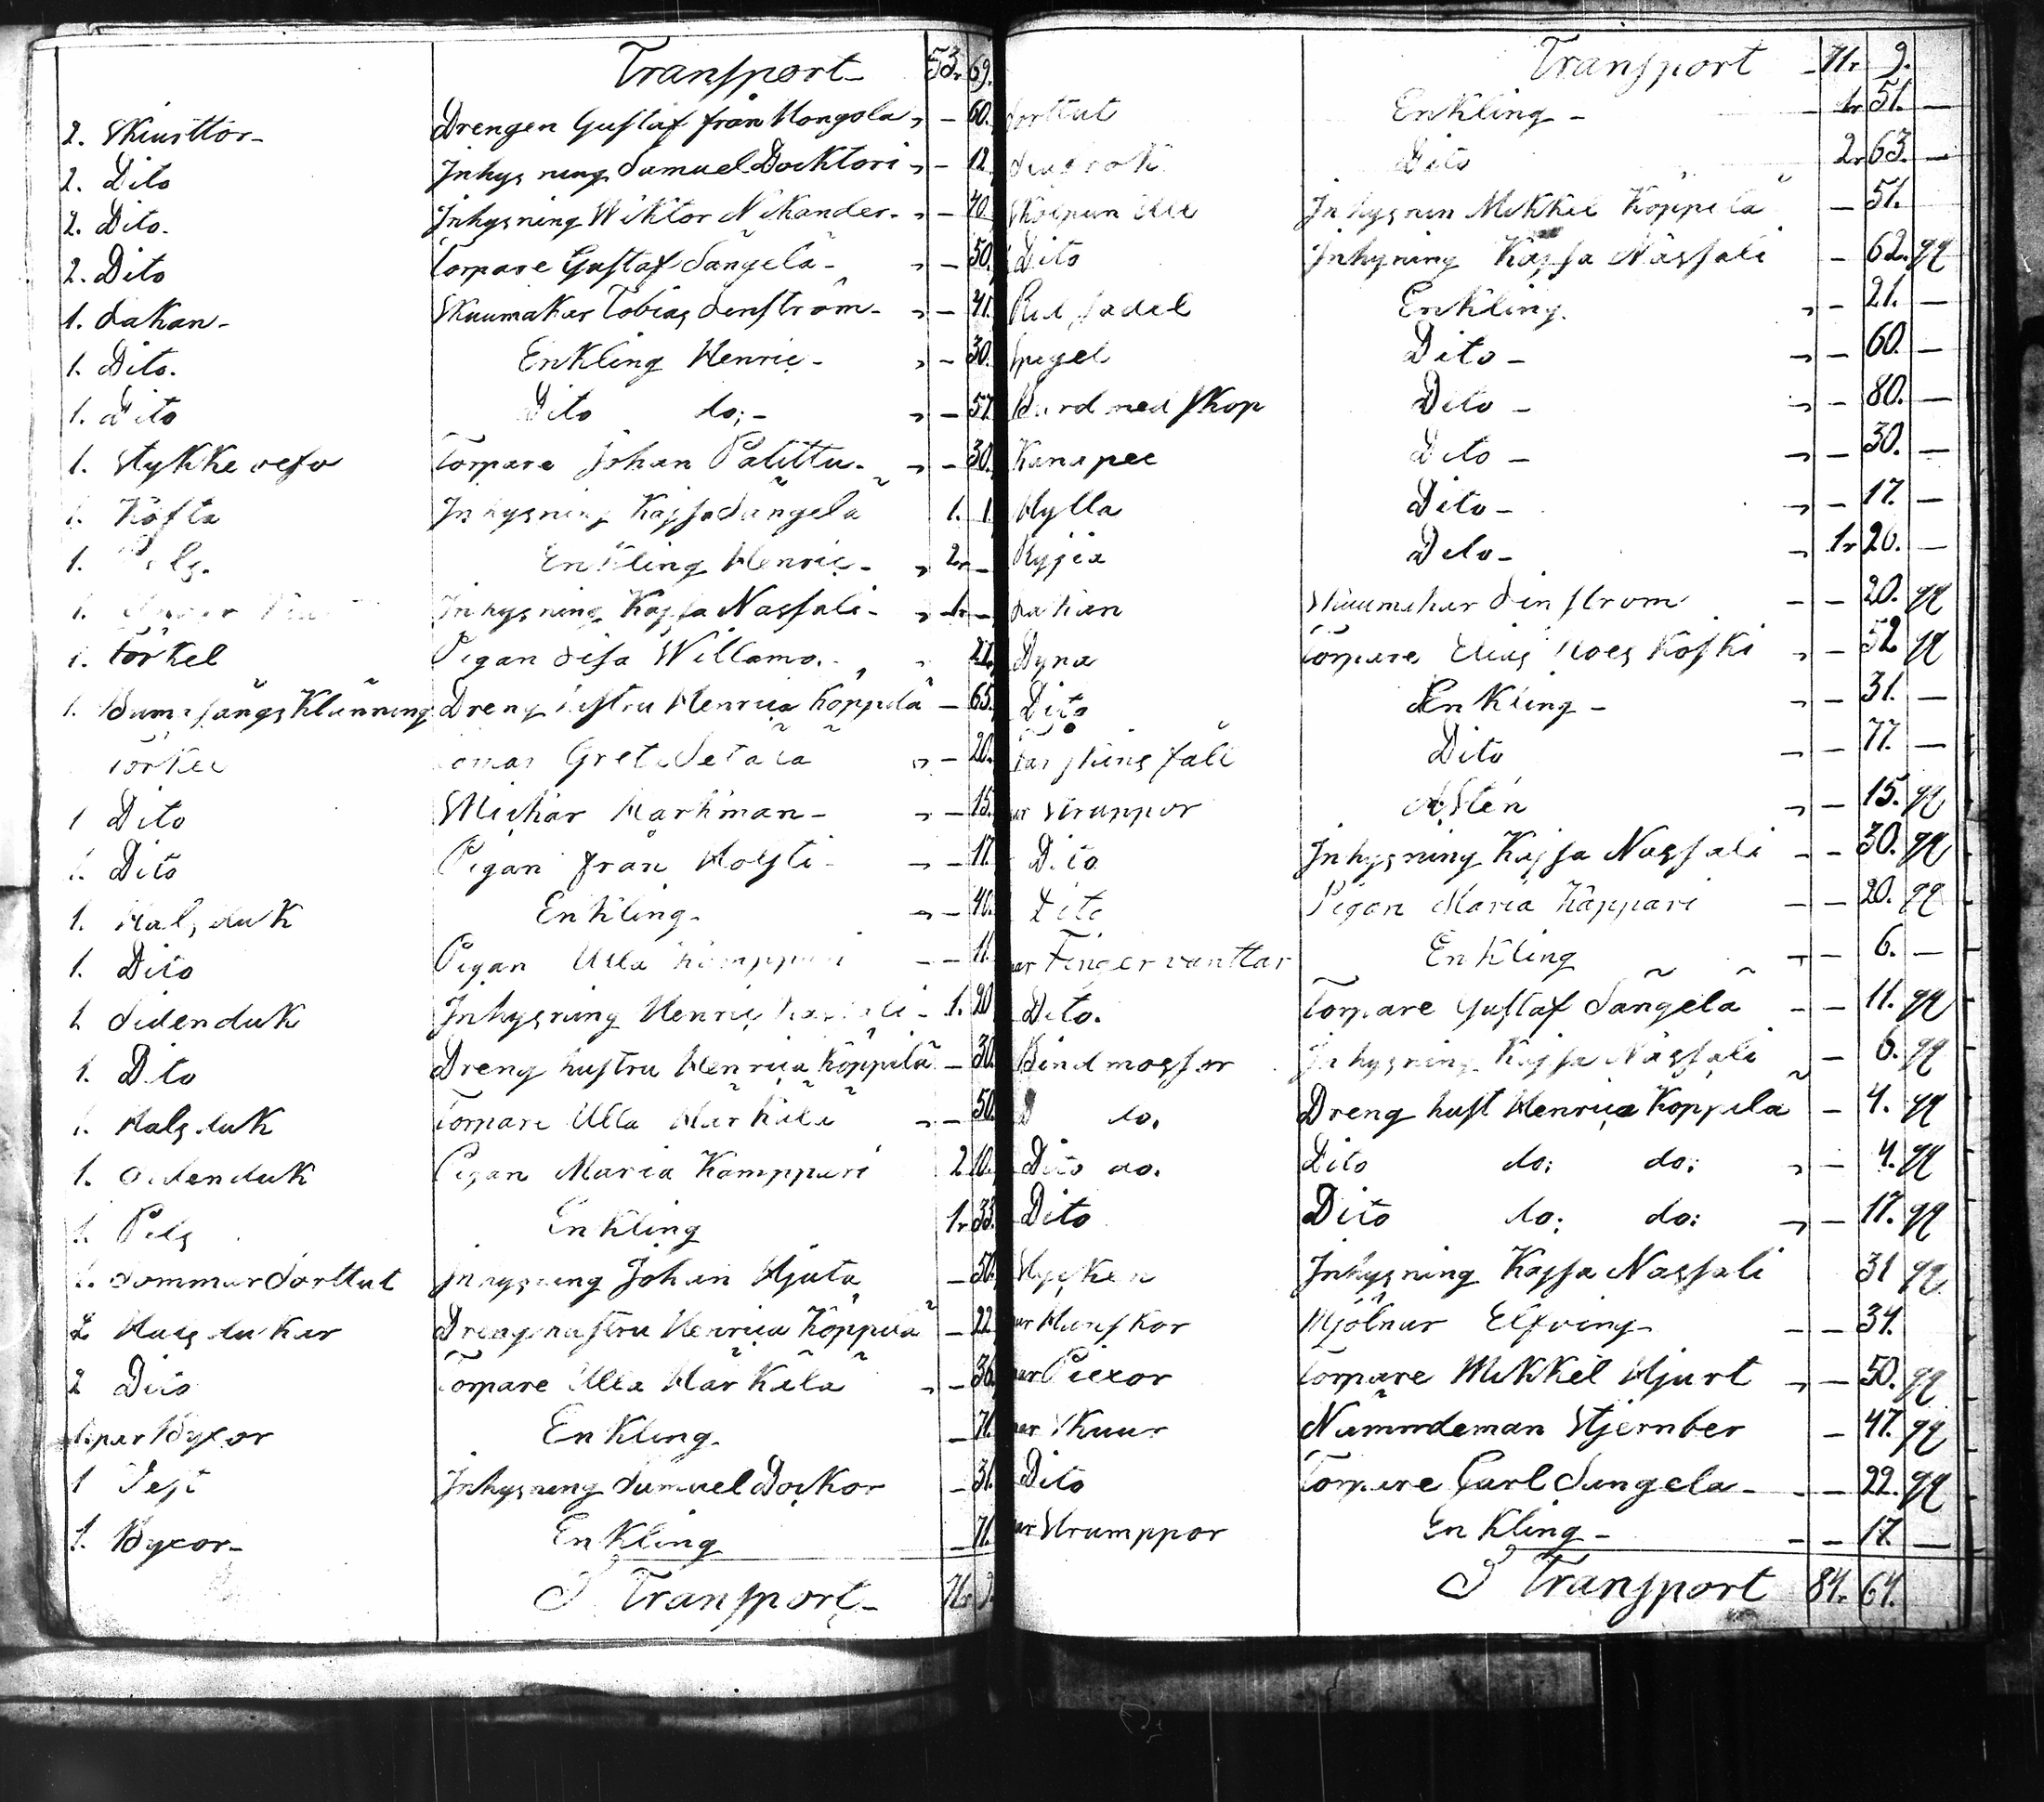 Transport 53. 69.
2. Skiusttor Drengen Gustaf från Hongola 60.
2. Dito Inhysning Samuel Docktori 12
2. Dito. Inhysning Wiktor Nikander. 40
2. Dito Torpare Gustaf Sängelä 50.
1. Lakan Skuumakar Tobias Senström 41.
1. Dito. Enkling Henric 30.
1. Dito Dito do: 57.
1. Stykke Torpare Johan Palittu. 30.
1. Köfta Inhysning Kajsa Sängelä 1. 1.
1. Enkling Henric 2
1. Inhysning Kajsa Nassali 1
1. Förkel Pigan Willamo. 21.
1. Klänning Dreng Hustru Henrica Köppilä 65.
Gret Setälä 20.
1 Dito Markman 15.
1. Dito Pigan från Holsti 17.
1. Halsduk Enkling 40.
1. Dito Pigan Ulla 11.
1. Sidenduk Inhysning Henric 1. 20
1. Dito Dreng hustru Henrica Köppilä 30.
1. Halsduk Torpare Ulla Härkälä 50.
1. Sidenduk Pigan Maria Kamppari 2 10.
1. Pels Enkling 1 33.
1. Sommar Sorttut Inhysning Johan Hjuta 50.
2 Halsdukar Dreng hustru Henrica Köppilä 22
2 Dito Torpare Ulla Härkälä 36.
1. par Byxor Enkling 71.
1 Inhysning Samuel Dockor 31.
1. Byxor Enkling 71.
S Transport 71. 9.
Transport 71. 9.
Sorttut Enkling 1 51. —
Dito 2 63. —
Ull Inhysnin Mikkel Köppilä 51.
Dito Inhyning Kajsa Nässäli 62. qq
Rid sadel Enkling. 21. —
Spegel Dito 60. —
Burd med skop Dito 80. —
Kanapee Dito 30. —
Hylla Dito 17. —
Ryjia Dito 1 26. —
Lakan Skuumakar Senstrom 20. qq
Dyna Torpare Elias Koski 52 qq
Dito Enkling 31. —
fäll Dito 77. —
Strumppor 15. qq
Dito Inhysning Kajsa Nassali 30. qq
Dito Pigan Maria Kappari 20. qq
Finger vanttar Enkling 6. —
Dito. Torpare Gustaf Sängelä 11. qq
Bindmossor Inhysning Kajsa Nassali 6. qq
do. Dreng hust Henrica Köppilä 4. qq
Dito do. Dito do: do: 4. qq
Dito Dito do: do: 17. qq
Inhysning Kajsa Nassali 31 qq
Hanskor Mjölnar Elfving 34.
Piexor Torpare Mikkel Hjurt 50. qq
Skuur Nämndeman Stjernber 47. qq
Dito Torpare Carl Sängelä 22. qq
Strumppor Enkling 17. —
S Transport 84. 64.